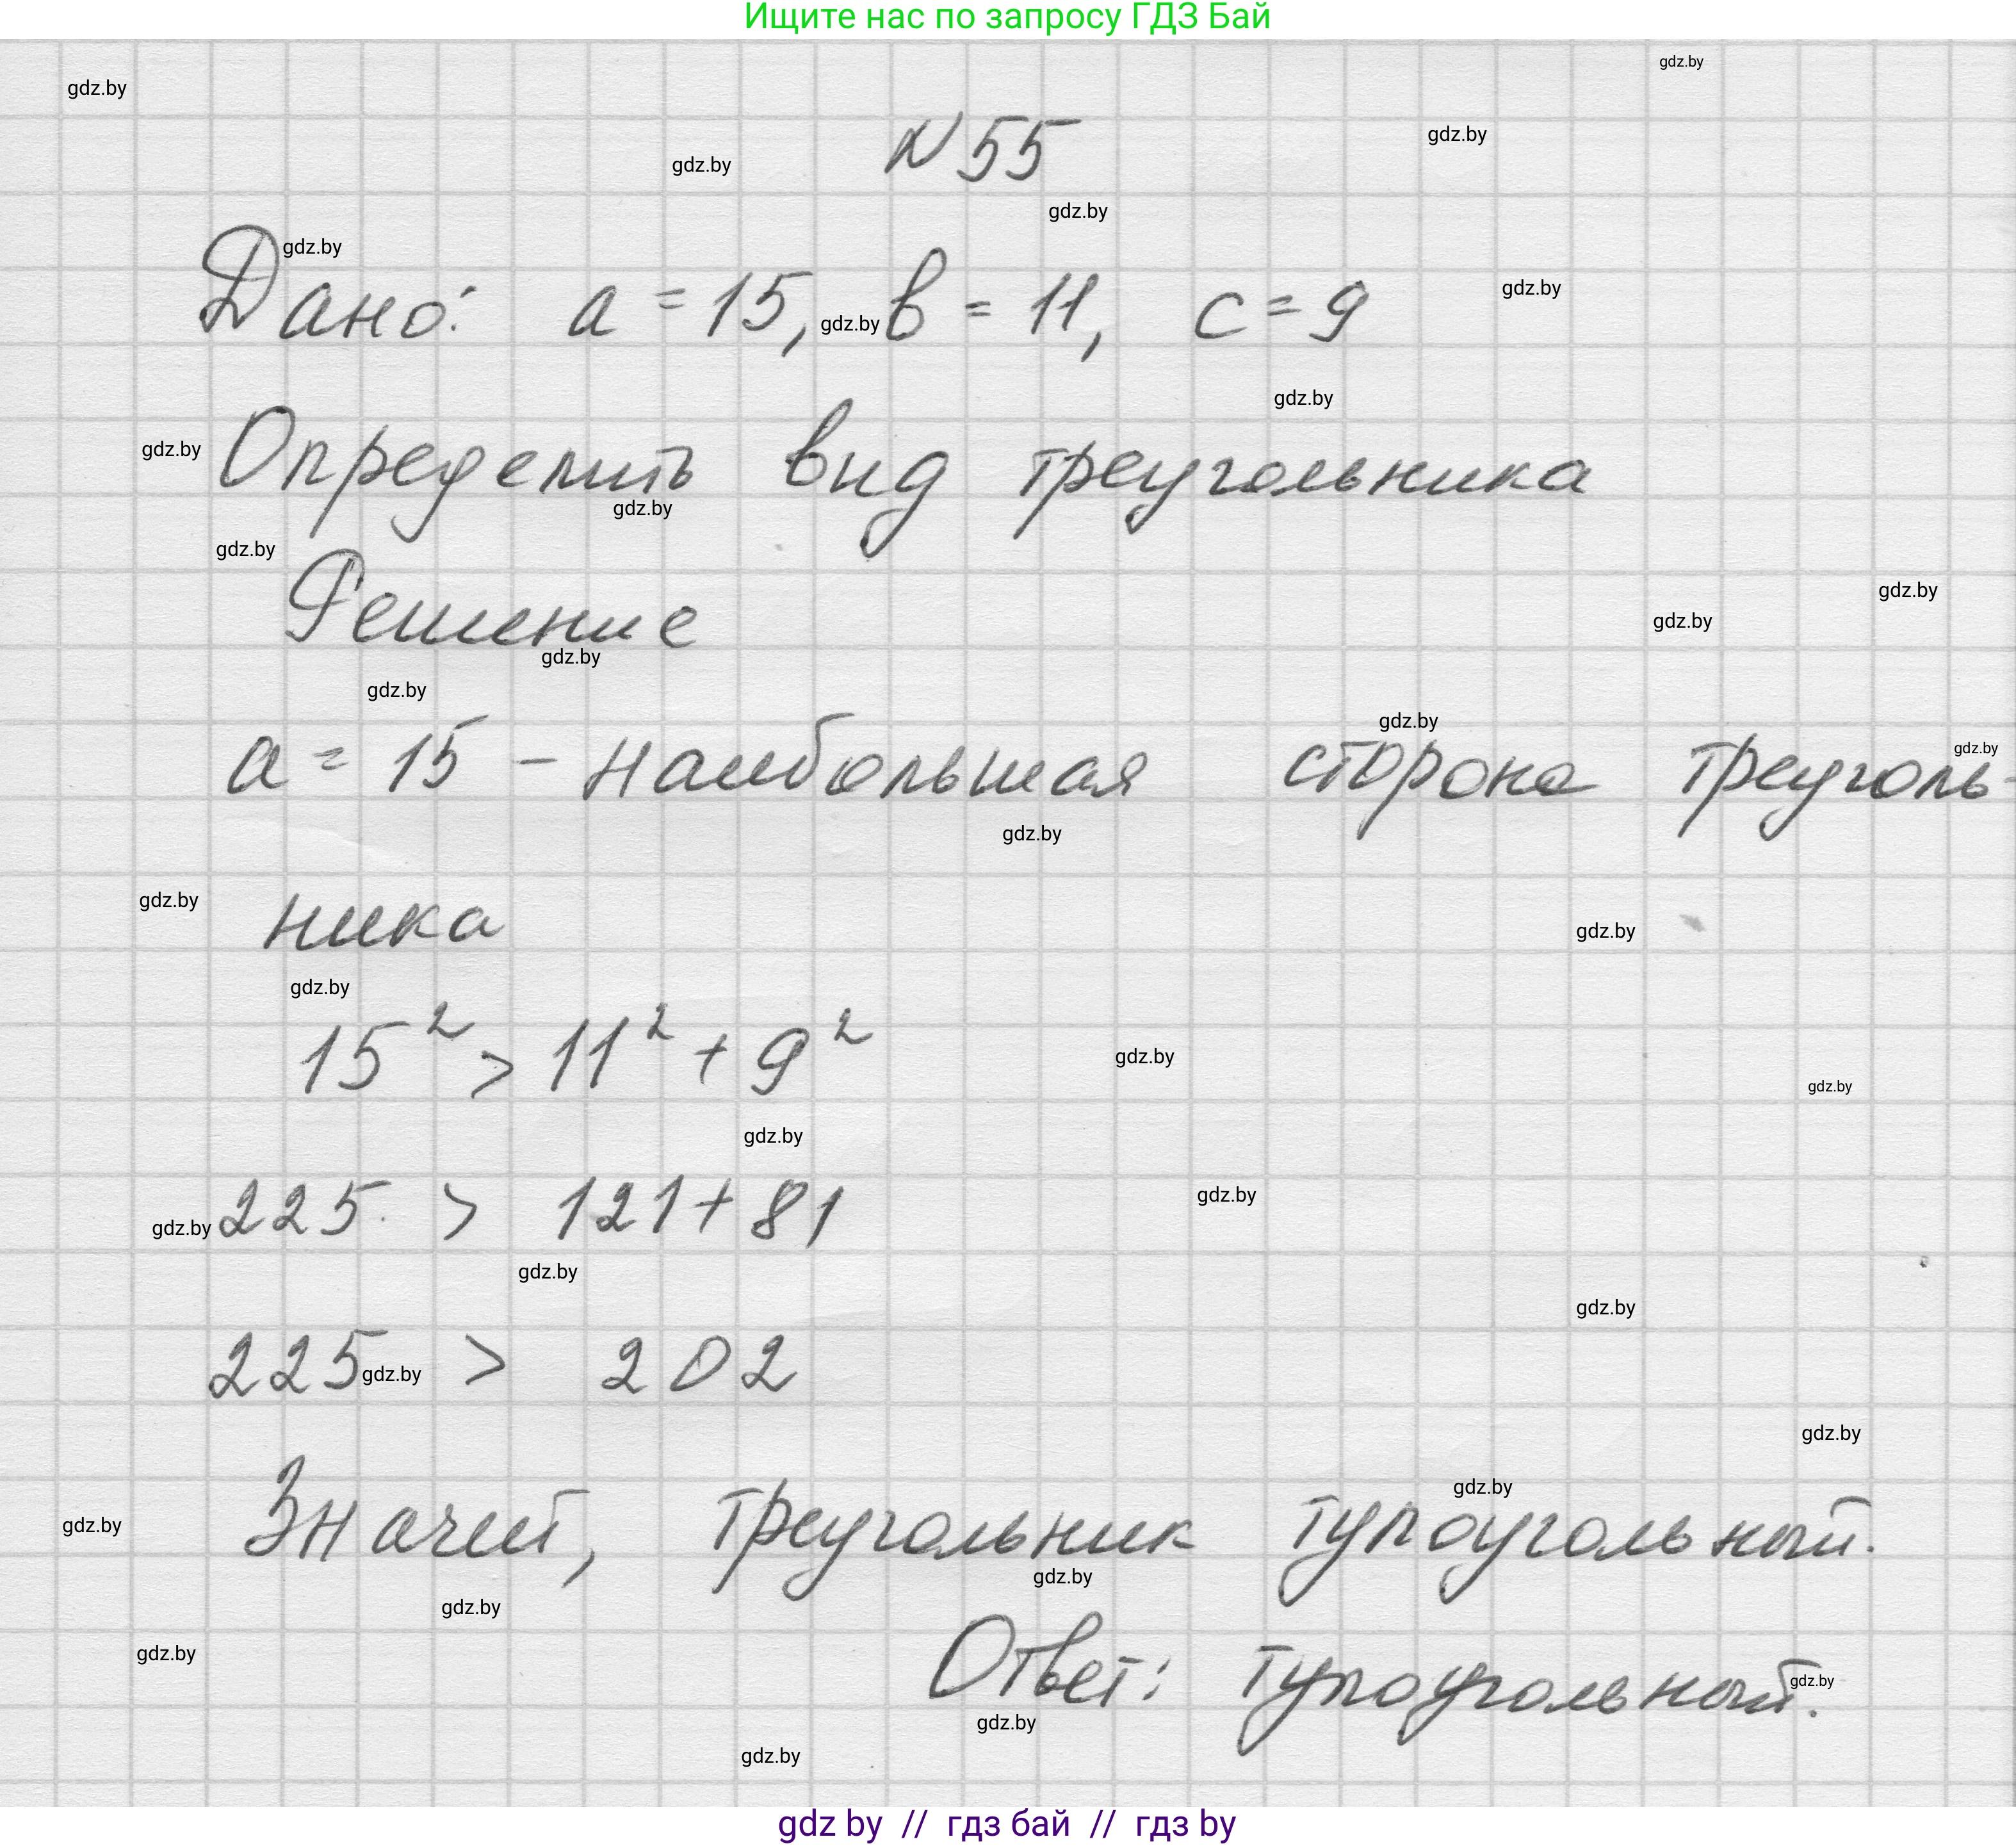 Ищите нас по запросу ГДЗ Бай
gdz.by
gdz.by
gdz.by
N 55
gdz.by
gdz.by
gdz.by
Дано: a = 15, b = 11, c = 9
gdz.by
gdz.by
gdz.by
gdz.by
Определить вид треугольника
gdz.by
gdz.by
Решение
gdz.by
gdz.by
gdz.by
gdz.by
gdz.by
gdz.by
a = 15 - наибольшая сторона треуголь-
gdz.by
gdz.by
ника
gdz.by
gdz.by
15² > 11² + 9²
gdz.by
gdz.by
gdz.by
gdz.by
225 > 121 + 81
gdz.by
gdz.by
gdz.by
225 > 202
gdz.by
gdz.by
gdz.by
gdz.by
Значит, треугольник тупоугольный.
gdz.by
gdz.by
gdz.by
Ответ: тупоугольный.
gdz.by
gdz.by
gdz.by
gdz by // гдз бай // гдз by